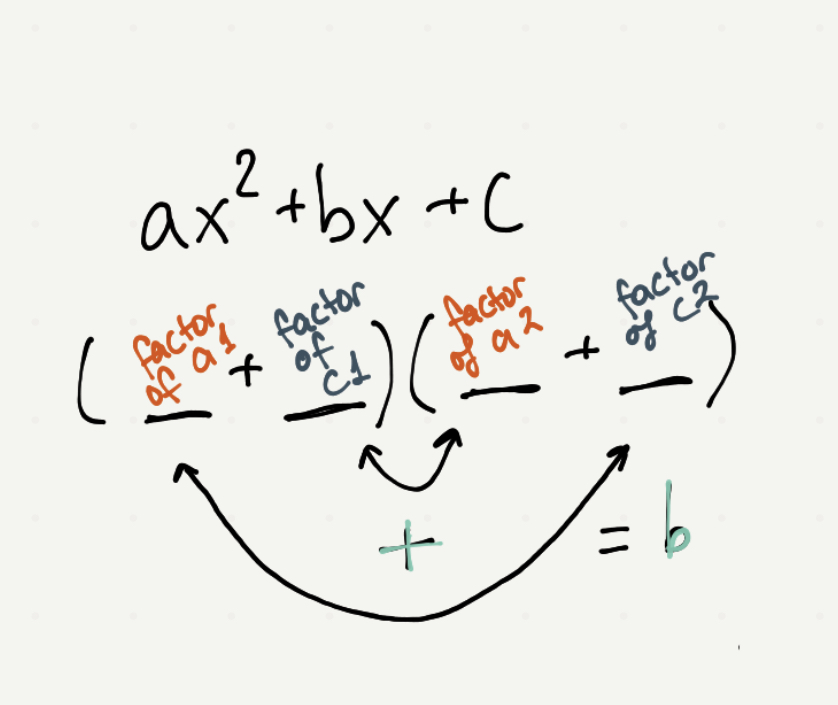 ax² + bx + c
( factor of a1 + factor of c1 ) ( factor of a2 + factor of c2 )
+ = b